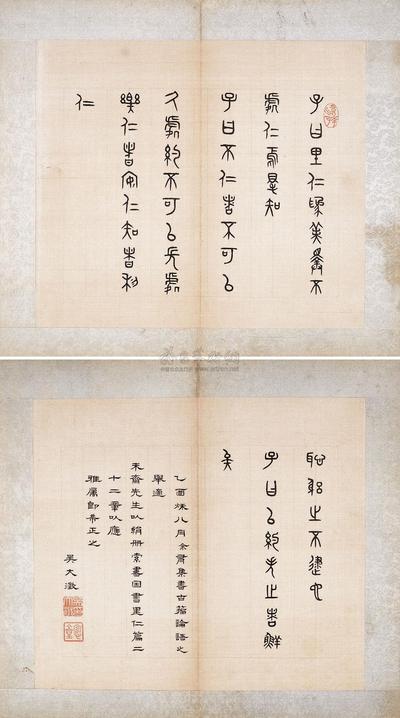 子曰里仁為美擇不
處仁焉得知
子曰不仁者不可以
久處約不可以長處
樂仁者安仁知者利
仁
恥躬之不逮也
子曰以約失之者鮮
矣
乙酉秋八月余集書古籀論語之
舉適
齋先生以絹冊索書因書里仁篇二
十二章以應
雅屬即希正之
吳大澂